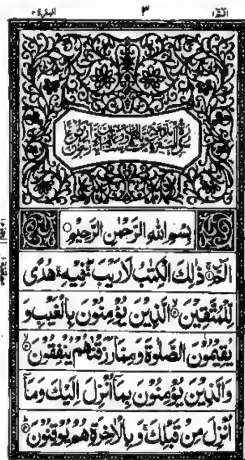 البقرة ٢
٣
الٓمّٓ ١
بِسْمِ اللهِ الرَّحْمٰنِ الرَّحِيْمِ
الٓمّٓ ۚ ذٰلِكَ الْكِتٰبُ لَا رَيْبَ ۛ فِيْهِ ۛ هُدًى
لِّلْمُتَّقِيْنَ ۙ الَّذِيْنَ يُؤْمِنُوْنَ بِالْغَيْبِ وَ
يُقِيْمُوْنَ الصَّلٰوةَ وَمِمَّا رَزَقْنٰهُمْ يُنْفِقُوْنَ ۙ
وَالَّذِيْنَ يُؤْمِنُوْنَ بِمَآ اُنْزِلَ اِلَيْكَ وَمَآ
اُنْزِلَ مِنْ قَبْلِكَ ۚ وَبِالْاٰخِرَةِ هُمْ يُوْقِنُوْنَ ۭ